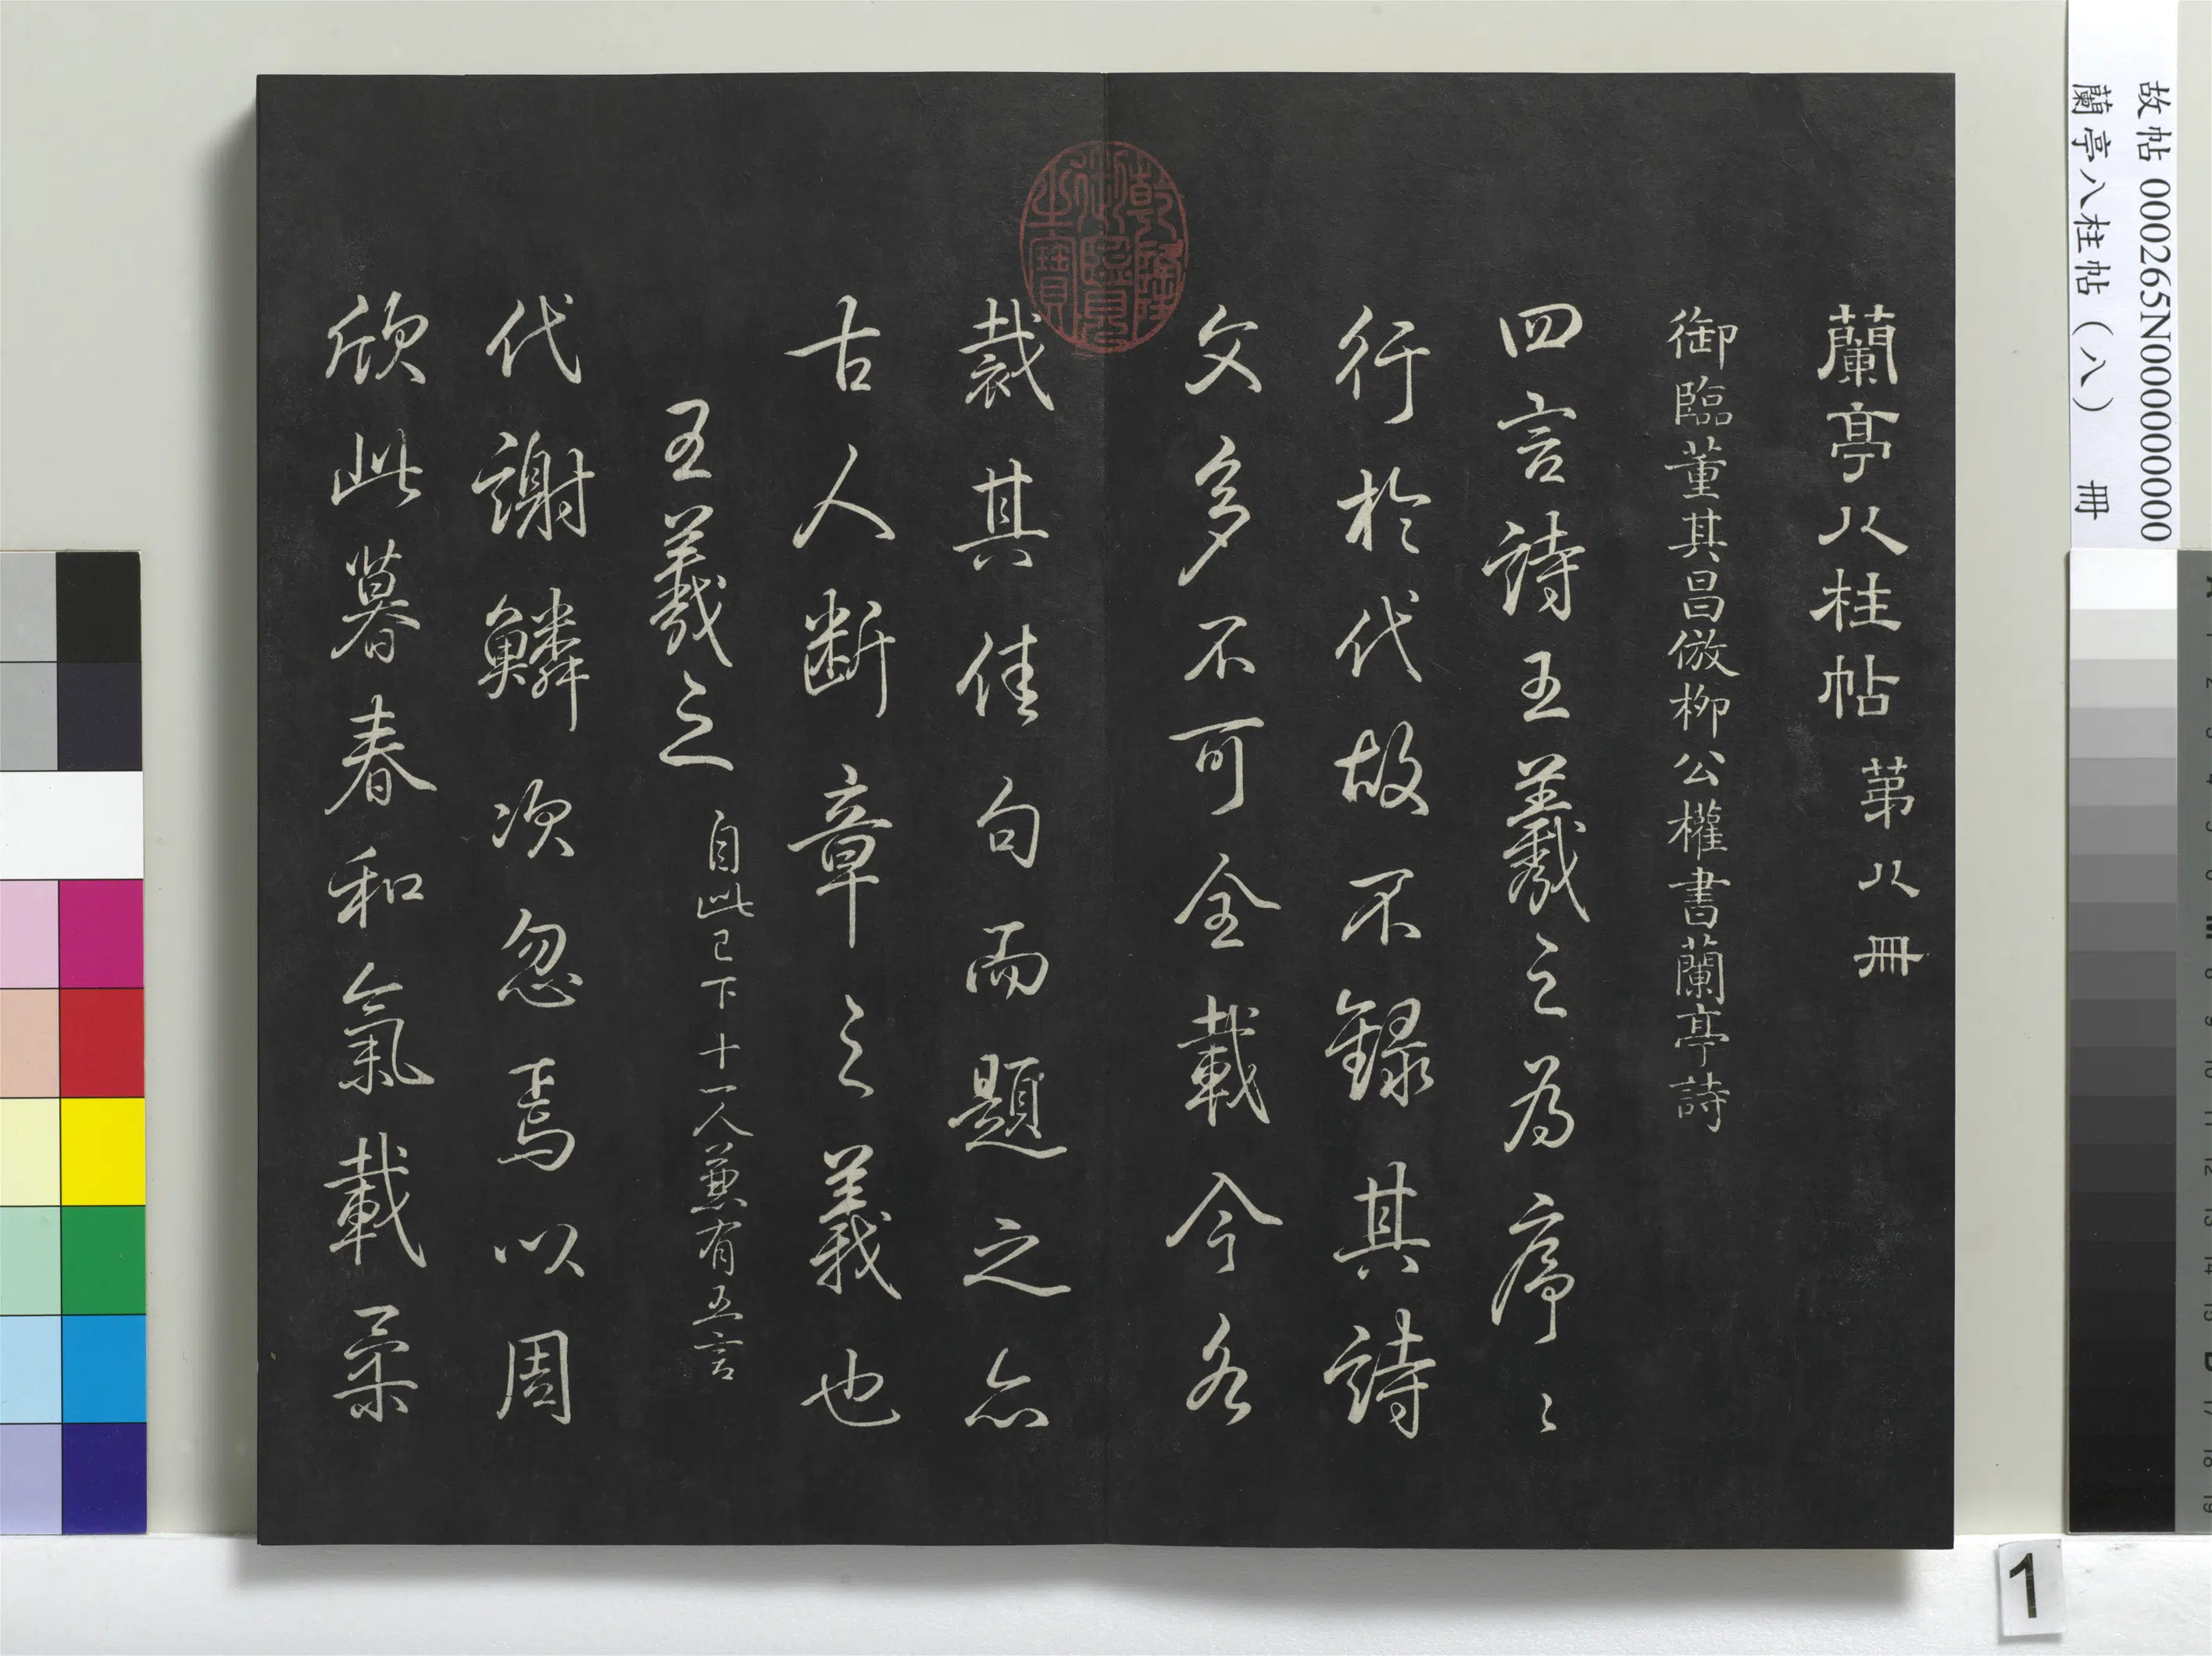 故帖 000265N000000000
蘭亭八柱帖（八） 冊
蘭亭八柱帖 苐八冊
御臨董其昌倣柳公權書蘭亭詩
四言詩王羲之為序〻
行於代故不録其詩
文多不可全載今各
裁其佳句而題之亦
古人断章之義也
王羲之 自此已下十一人兼有五言
代謝鱗次忽焉以周
欣此暮春和氣載柔
乾隆
御臨
之寶
1